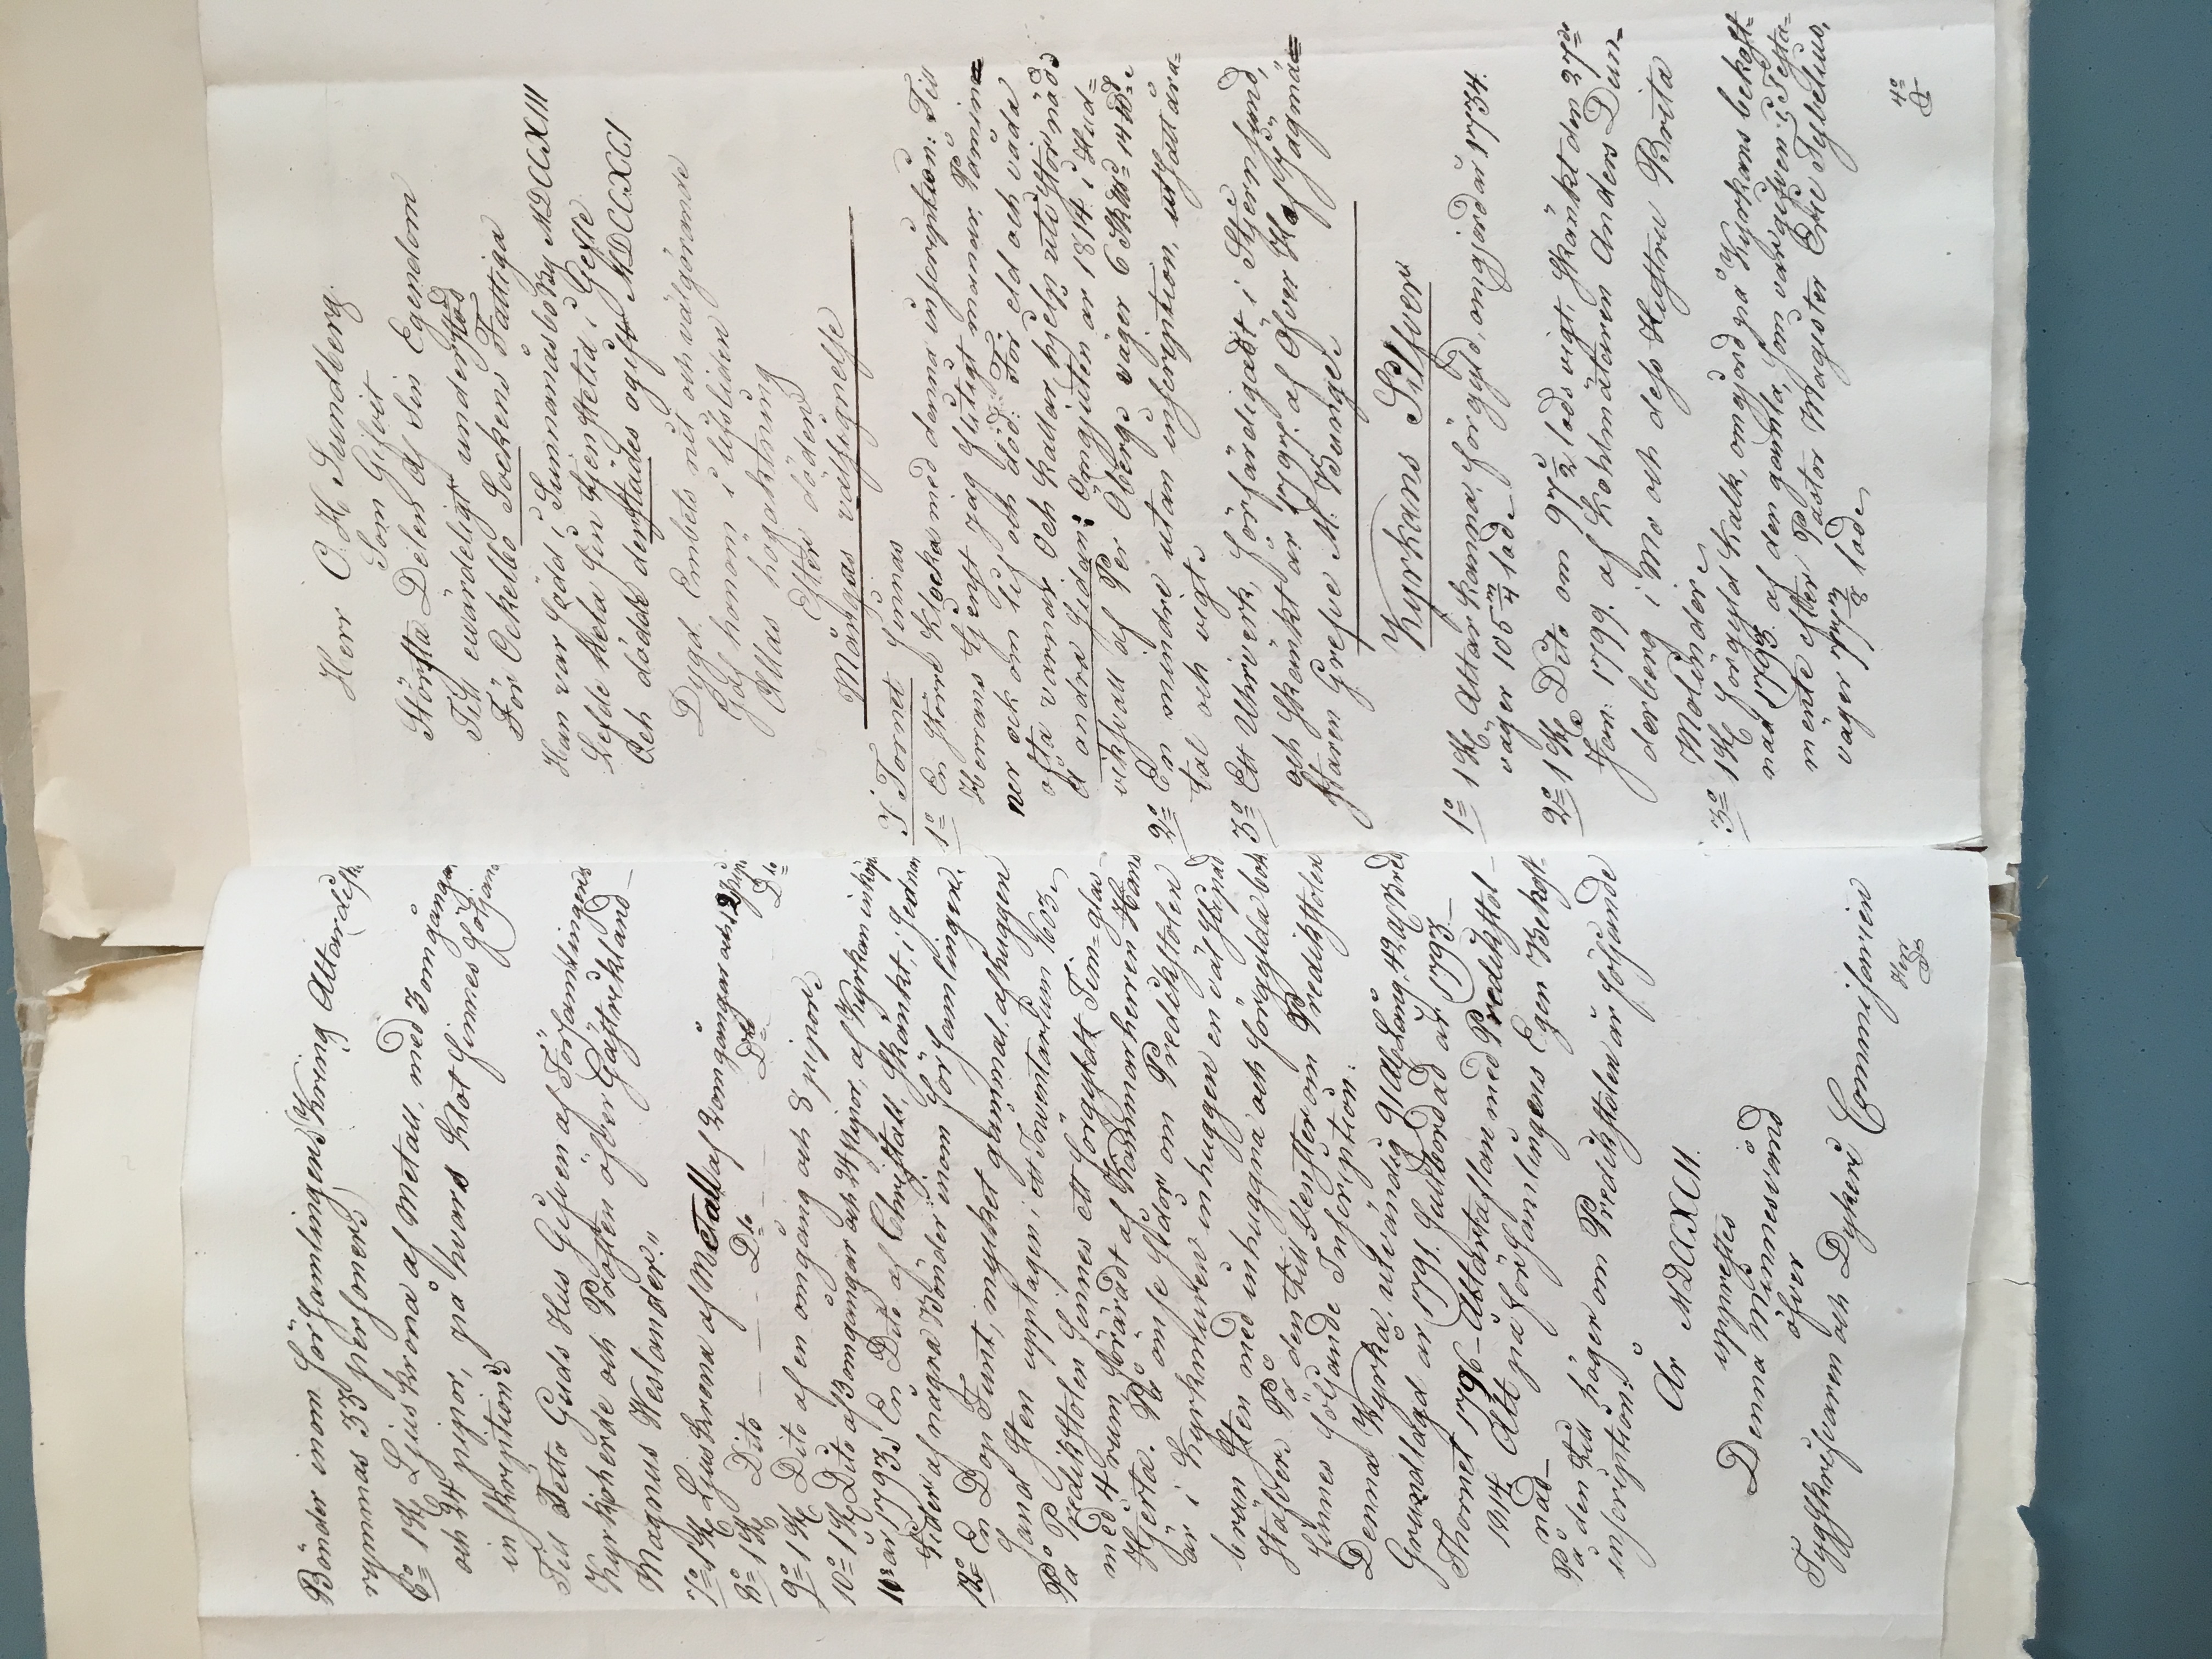 Bönder inom Församlingen. Kring Altardisk
rymmas 33 personer.
6o 1 st Ljuskrona af Metall, med 3 omgångar
och 24 pipor, på hvars klot finnes följande
inskription:
Till Detta Guds Hus Gifven af Församlingens
Kyrkoherde och Prosten öfver Gästrikland
Magnus Weslander."
7o 1 st Ljuskrona af Metall af 2 omgångar och 12 Pipor
8o 1 st Dito — D:to — D:to D:to
9o 1 st Dito af en omgång och 8 pipor
10o 1 st Dito af 3 omgångar och 24 Pipor, af Kyrkan inköpt
år 1793. En Dito af Christall, Skänkt, i
tider af några Bönder inom Församlingen.
12o En Dop Funt, mycket gammal, afhuggen
Sand Sten upptagen i ett Inventarium 1603.
På Predikstolen finnes ett förgyldt Tim-glas
med 4 rum föräradt af Kammarherren Hans
Hjerta. På ömse sidor om Predikstolen
är i kyrkmuren inhuggen en väl slipad
brun Sten med inhuggna och förgyllda bok
stäfver. På den till venster om Predikstolen
finnes följande Inscription:
Denna Kyrka, utvändig 91 Al. Lång, 42 Al. Bred
Grundlagd år 1791. Fullbordad år 1793.
Thornet 1796 – Altartaflan med Predikstol-
1814 Allt på Församlingens Egen Bekost-
nad —
På den till höger om Predikstolen är följande
inscription:
År MDCCXCII.
upprestes
Denna Minnesvård
öfver
Tygskrifvaren och Dykeri Commissarien
Herr
Herr C. H. Sundberg.
Som Gifvit
Största Delen af Sin Egendom
Till ewärdeligt understöd
För Ockelbo Sockens Fattiga
Han var född i Summanäsboby MDCCXIII
Lefde hela sin tjenstetid i Gefle
Och dödde derstädes ogift MDCCXCI
Dygd. Embets nit och välgörande
Gaf honom i lifstiden
Allas högaktning
Efter döden
Mångas välsignelse
I Tornet finnas
1o En större Klocka med denna inscription: Till
Herrans tjenst jag flitigt manar, Påmin-
ner ock om lif och död: För eld och våda
ofta varnar Och kallar hjelp uti stor nöd
å andra Sidan: Omgjuten år 1814 i Hud-
viksvall af Per Oberg väger 6 Sk℔ 14 L℔
2o En mindre utan inscription, utsatt åra-
tal och vigt.
3o Ett Uhrverk, förfärdigadt i Stjernsund,
och Skänkt år 1797. af Öfver Hof Jägmä-
staren Grefve M. Bunge.
Kyrkans Silfver
1o 1 st Altar kanna, förgyld, omgjord år 1734.
väger 105 3/4 lod.
2o 1 st Dito om 97 1/2 lods vigt, Skänkt den 27de
Jan: 1799. af Kohlmätaren Anders Dun-
derberg i Mo och dess Hustru Brita
Molinder
3o 1 st förgyld Kalk, omgjord på Kyrkans bekost-
nad 1793. af den gamla, som var gifven i Testa-
mente efter Pastor Magister Eric Sybelius,
väger 1/8 lod
4o